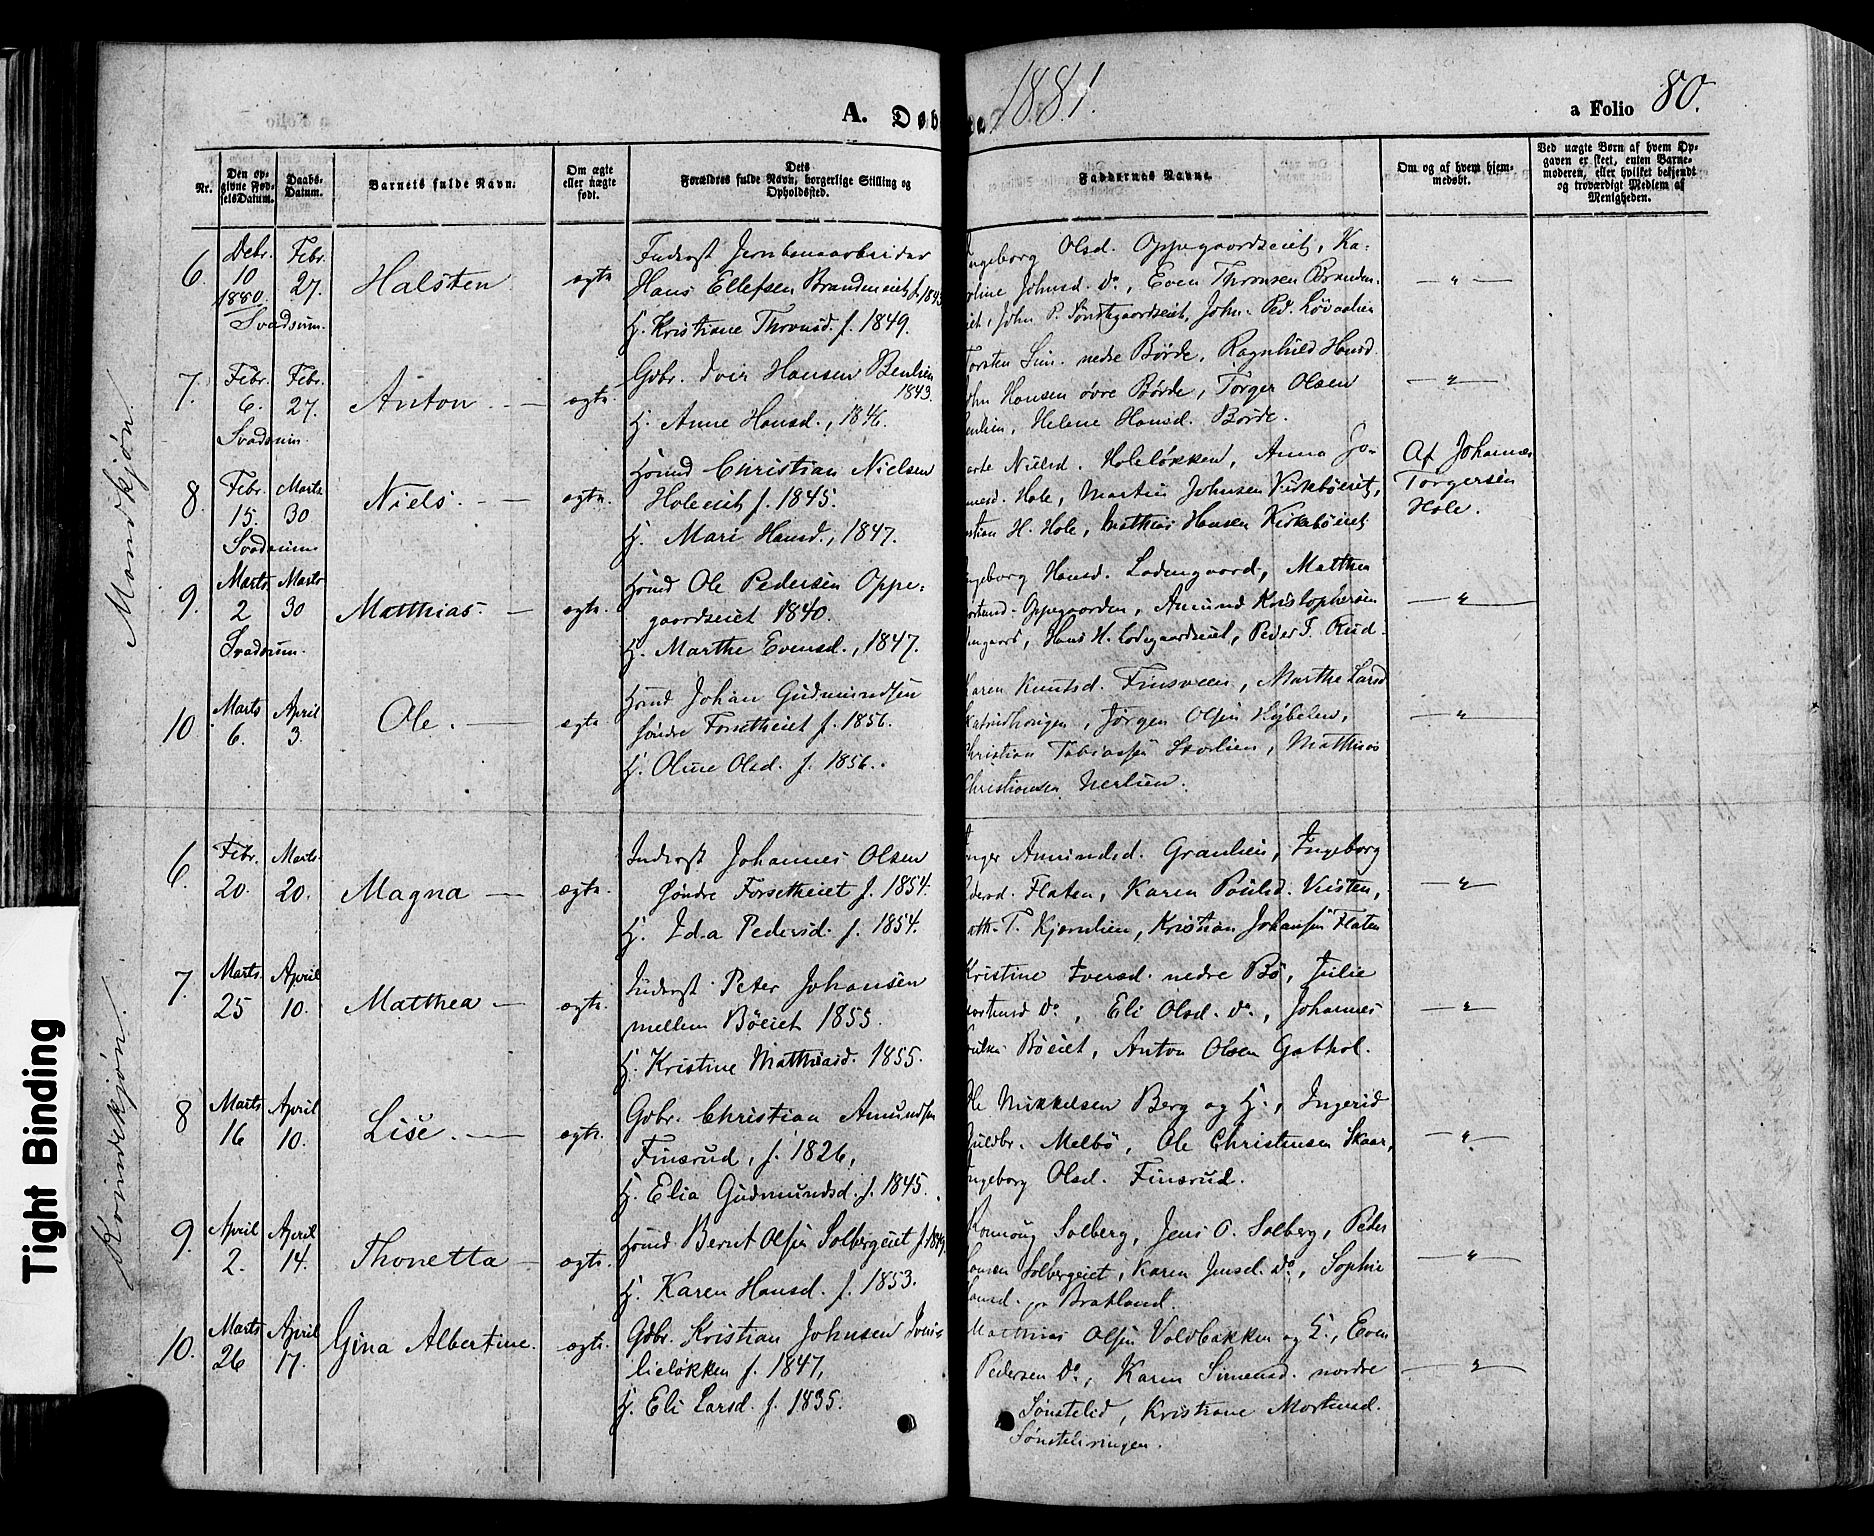 1881.
A. Døb
a Folio 80.
Nr.
Den op-
givne Fød-
selsDatum.
Daabs-
Datum.
Barnets fulde Navn.
Om ægte
eller uægte
født.
Dets
Forældres fulde Navn, borgerlige Stilling og
Opholdssted.
Faddernes Navne.
Om og af hvem hjem-
medøbt.
Ved uægte Børn af hvem Op-
gaven er skeet, enten Barne-
moderen, eller hvilket bekjendt
og troværdigt Medlem af
Menigheden.
Mandkjøn.
6. Debr. 10 1880. Febr. 27. Svadsum.
Halsten
ægte
Inderst Jernbanearbeider
Hans Ellefsen Brandeneiet f. 1843
H. Kristiane Thronsd. f. 1849.
Ingeborg Olsd. Oppegaardseiet, Ka-
roline Johnsd. do, Even Thronsen Branden-
eiet, John P. Sønstegaardseiet, John Ped. Løvaalien
— " —
7. Febr. 6. Febr. 27. Svadsum.
Anton. —
ægte
Gdbr. Iver Hansen Benlien
1843.
H. Anne Hansd., 1846.
Torsten Sim. nedre Børde, Ragnhild Hansd.
John Hansen øvre Børde, Torger Olsen
Benlien, Helene Hansd. Børde.
— " —
8. Febr. 15. Marts 30 Svadsum
Niels. —
ægte
Hmd Christian Nielsen
Holeeiet f. 1845.
H. Mari Hansd., 1847.
Marte Nielsd. Holeløkken, Anna Jo-
hannesd. Hole, Martin Johnsen Kirkebøeiet,
Kristian H. Hole, Mathias Hansen Kirkebøeiet
Af Johannes
Torgersen
Hole.
9. Marts 2 Marts 30 Svadsum.
Matthias. —
ægte.
Hmd Ole Pedersen Oppe-
gaardseiet 1840.
H. Marthe Evensd., 1847.
Ingeborg Hansd. Ladengaard, Matthea
Oppegaarden, Amund Kristophersen
Hans H. Ladegaardseiet, Peder T. Rud
— " —
10 Marts 6. April 3.
Ole. —
ægte
Hmd Johan Gudmundsen
søndre Forsetheiet f. 1856.
H. Oline Olsd. f. 1856.
Karen Knutsd. Finsveen, Marthe Larsd
Jørgen Olsen Høibelen,
Christian Tobiassen Lien, Matthias
Christiansen Nerlien.
— " —
Kvindekjøn.
6. Febr. 20. Marts 20.
Magna —
ægte.
Inderst Johannes Olsen
søndre Forsetheiet f. 1854.
H. Ida Pedersd. f. 1854.
Inger Amundsd. Granlien, Ingeborg
Pedersd. Flaten, Karen Poulsd. Veisten,
Math. T. Kjørnlien, Kristian Johansen Flaten
— " —
7. Marts 25 April 10.
Matthea —
ægte.
Inderst Peter Johansen
mellem Bøeiet 1855.
H. Kristine Matthiasd. 1855.
Kristine Iversd. nedre Bø, Julie
Mortensd do, Eli Olsd. do, Johannes
Bøeiet, Anton Olsen Gabhol.
— " —
8 Marts 16 April 10.
Lise. —
ægte.
Gdbr. Christian Amundsen
Finsrud, f. 1826,
H. Elia Gudmundsd. f. 1845.
Ole Mikkelsen Berg og H., Ingerid
Guldbr. Melbø, Ole Christensen Skaar,
Ingeborg Olsd. Finsrud.
— " —
9. April 2. April 14.
Thonetta —
ægte.
Hmd. Bernt Olsen Solbergeiet f. 1849.
H. Karen Hansd. f. 1853.
Ronnoug Solberg, Jens O. Solberg, Peder
Hansen Solbergeiet, Karen Jensd. do, Sophie
Hansd. fra Bratland.
— " —
10. Marts 26 April 17.
Gina Albertine.
ægte.
Gdbr. Kristian Johnsen
lieløkken f. 1847,
H. Eli Larsd. f. 1835.
Matthias Olsen Voldbakken og H., Even
Pedersen do, Karen Simensd. nordre
Sønstelid, Kristiane Mortensd.
Sønsteliringen.
— " —
Tight Binding